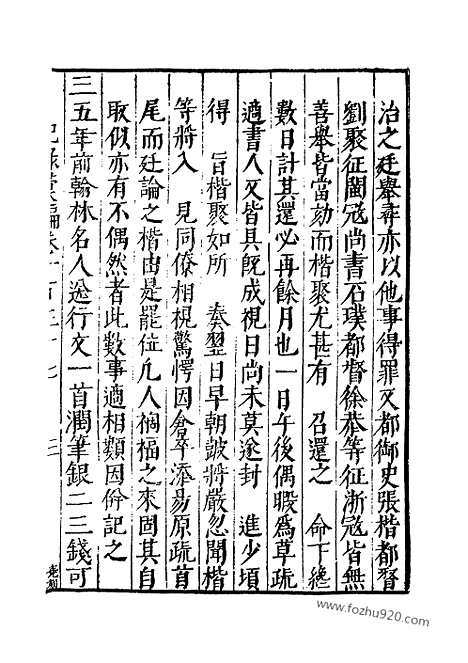 治之廷舉尋亦以他事得罪又都御史張楷都督
劉聚征閩冦尚書石璞都督徐恭等征浙冦皆無
善舉皆當劾而楷聚尤甚有 召還之 命下纔
數日計其還必再餘月也一日午後偶暇爲草疏
適書人又皆具旣成視日尚未莫遂封 進少頃
得 㫖楷聚如所 奏翌日早朝皷將嚴忽聞楷
等將入 見同僚相視驚愕因倉卒添易原疏首
尾而廷論之楷由是罷位凢人禍福之來固其自
取似亦有不偶然者此數事適相類因倂記之
三五年前翰林名人送行文一首潤筆銀二三錢可
紀錄彚編卷一百三十七
三
www.fozhu920.com